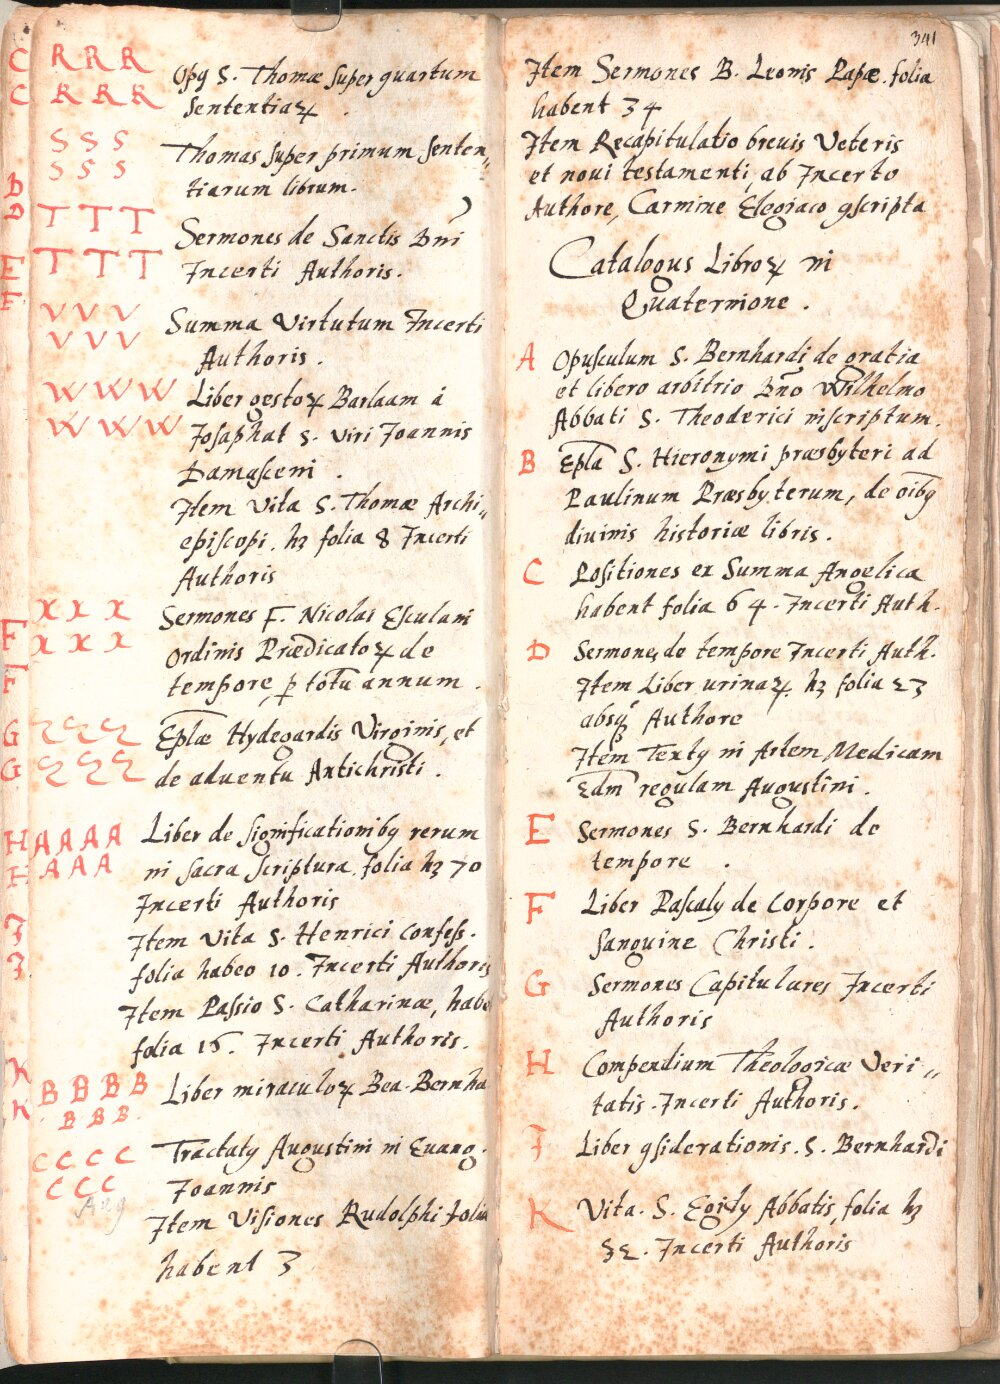 C R R R Opꝰ S. Thomæ super quartum
C R R R Sententiaꝝ.
S S S Thomas super primum senten„
S S S tiarum librum.
D
D T T T Sermones de Sanctis Dni
E T T T Incerti Authoris.
E
V V V Summa Virtutum Incerti
V V V Authoris.
W W W Liber gestoꝝ Barlaam a
W W W Josaphat S. Viri Joannis
Damasceni.
Item Vita S. Thomæ Archi„
episcopi. hꝫ folia 8 Incerti
Authoris
X X X Sermones F. Nicolai Esculani
F X X X Ordinis Prædicatoꝝ de
F tempore, ꝑ totũ annum.
G Z Z Z Eplæ Hydegardis Virginis, et
G Z Z Z de aduentu Antichristi.
H A A A A Liber de significationibꝰ rerum
H A A A in sacra scriptura, folia hꝫ 70
Incerti Authoris
I Item Vita S. Henrici Confess.
I folia habeo 10. Incerti Authoris
Item Passio S. Catharinæ, habe
folia 15. Incerti Authoris.
K B B B B Liber miraculoꝝ Bea. Bernha
K B B B
C C C C Tractatꝰ Augustini in Euang.
C C C Joannis
Aug
Item Visiones Rudolphi folia
habent 3
341
Item Sermones B. Leonis Papæ. folia
habent 34
Item Recapitulatio breuis Veteris
et noui testamenti, ab Incerto
Authore, Carmine Elegiaco ꝯscripta
Catalogus Libroꝝ in
Quaternione.
A Opusculum S. Bernhardi de gratia
et libero arbitrio Dño Wilhelmo
Abbati S. Theoderici inscriptum.
B Epla S. Hieronymi præsbyteri ad
Paulinum Præsbyterum, de oĩbꝰ
diuinis historiæ libris.
C Positiones ex Summa Angelica
habent folia 64. Incerti Auth.
D Sermones de tempore Incerti Auth.
Item Liber urinaꝝ. hꝫ folia 23
absqꝫ Authore
Item Textꝰ in Artem Medicam
Scdm regulam Augustini.
E Sermones S. Bernhardi de
tempore.
F Liber Pascalꝰ de Corpore et
Sanguine Christi.
G Sermones Capitulares Incerti
Authoris
H Compendium Theologicæ Veri„
tatis. Incerti Authoris.
I Liber ꝯsiderationis. S. Bernhardi
K Vita. S. Egidy Abbatis, folia hꝫ
32. Incerti Authoris